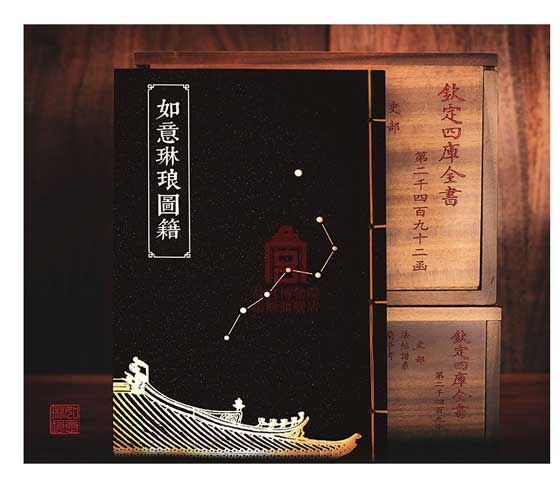 如意琳琅圖籍
欽定四庫全書
史部
第二千四百九十二函
欽定四庫全書
史部
法帖譜系
第二千四百九